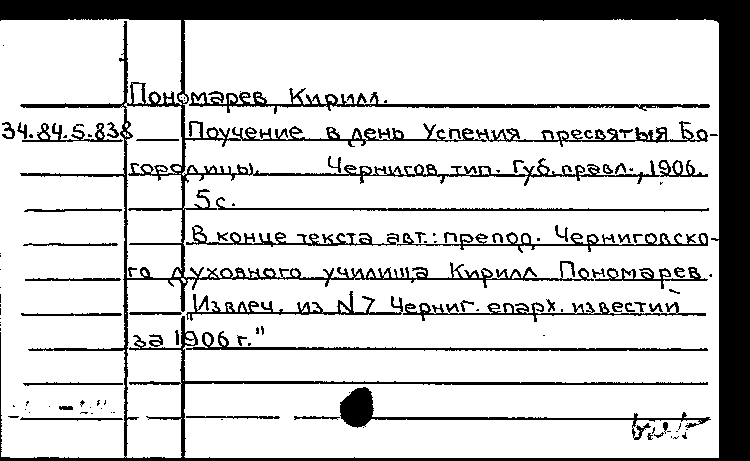 Пономарев, Кирилл.
34.84.5.838 Поучение в день Успения пресвятыя Бо-
городицы. Чернигов, тип. Губ. правл., 1906.
5 с.
В конце текста авт.: препод. Черниговско-
го духовного училища Кирилл Пономарев.
"Извлеч. из N 7 Черниг. епарх. известий
за 1906 г."